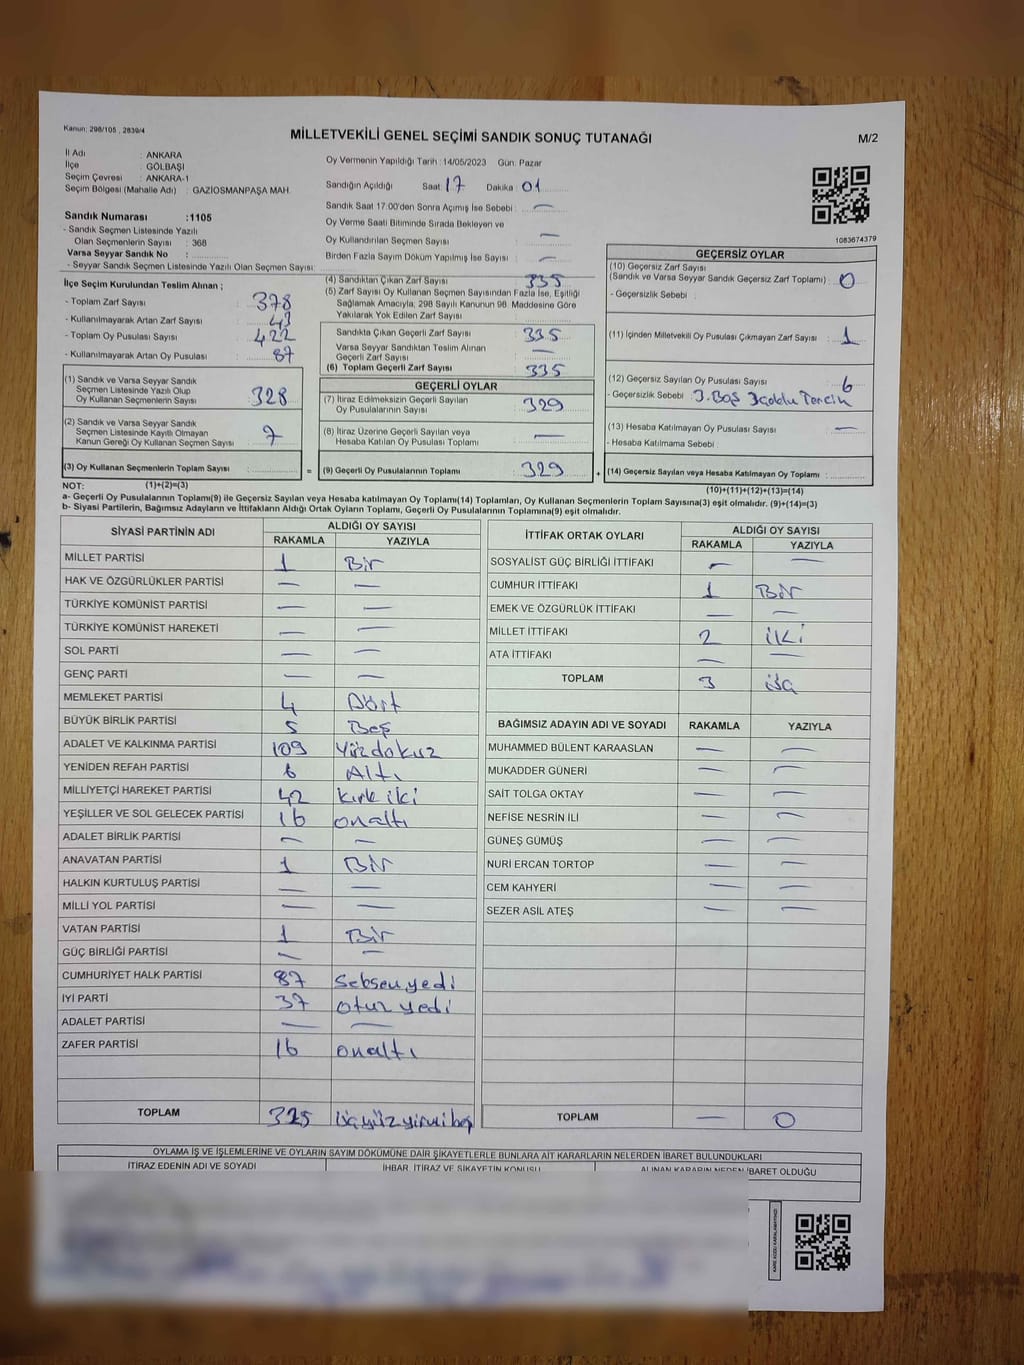 Kanun: 298/105 , 2839/4
MİLLETVEKİLİ GENEL SEÇİMİ SANDIK SONUÇ TUTANAĞI
M/2
İl Adı : ANKARA
İlçe : GÖLBAŞI
Seçim Çevresi : ANKARA-1
Seçim Bölgesi (Mahalle Adı) : GAZİOSMANPAŞA MAH.
Sandık Numarası :1105
- Sandık Seçmen Listesinde Yazılı
Olan Seçmenlerin Sayısı : 368
Varsa Seyyar Sandık No :
- Seyyar Sandık Seçmen Listesinde Yazılı Olan Seçmen Sayısı:
Oy Vermenin Yapıldığı Tarih : 14/05/2023 Gün: Pazar
Sandığın Açıldığı Saat 17 Dakika 01
Sandık Saat 17:00'den Sonra Açılmış İse Sebebi : —
Oy Verme Saati Bitiminde Sırada Bekleyen ve
Oy Kullandırılan Seçmen Sayısı —
Birden Fazla Sayım Döküm Yapılmış İse Sayısı : —
1083674379
İlçe Seçim Kurulundan Teslim Alınan ;
- Toplam Zarf Sayısı : 378
- Kullanılmayarak Artan Zarf Sayısı : 43
- Toplam Oy Pusulası Sayısı : 422
- Kullanılmayarak Artan Oy Pusulası : 87
(1) Sandık ve Varsa Seyyar Sandık
Seçmen Listesinde Yazılı Olup
Oy Kullanan Seçmenlerin Sayısı : 328
(2) Sandık ve Varsa Seyyar Sandık
Seçmen Listesinde Kayıtlı Olmayan
Kanun Gereği Oy Kullanan Seçmen Sayısı : 7
(3) Oy Kullanan Seçmenlerin Toplam Sayısı :
(4) Sandıktan Çıkan Zarf Sayısı : 335
(5) Zarf Sayısı Oy Kullanan Seçmen Sayısından Fazla İse, Eşitliği
Sağlamak Amacıyla, 298 Sayılı Kanunun 98. Maddesine Göre
Yakılarak Yok Edilen Zarf Sayısı :
Sandıkta Çıkan Geçerli Zarf Sayısı : 335
Varsa Seyyar Sandıktan Teslim Alınan
Geçerli Zarf Sayısı : —
(6) Toplam Geçerli Zarf Sayısı : 335
GEÇERLİ OYLAR
(7) İtiraz Edilmeksizin Geçerli Sayılan
Oy Pusulalarının Sayısı : 329
(8) İtiraz Üzerine Geçerli Sayılan veya
Hesaba Katılan Oy Pusulası Toplamı : —
= (9) Geçerli Oy Pusulalarının Toplamı : 329
GEÇERSİZ OYLAR
(10) Geçersiz Zarf Sayısı
(Sandık ve Varsa Seyyar Sandık Geçersiz Zarf Toplamı) : 0
- Geçersizlik Sebebi :
(11) İçinden Milletvekili Oy Pusulası Çıkmayan Zarf Sayısı : 1
(12) Geçersiz Sayılan Oy Pusulası Sayısı : 6
- Geçersizlik Sebebi : 3. Boş
(13) Hesaba Katılmayan Oy Pusulası Sayısı : —
- Hesaba Katılmama Sebebi :
+ (14) Geçersiz Sayılan veya Hesaba Katılmayan Oy Toplamı :
NOT: (1)+(2)=(3)
(10)+(11)+(12)+(13)=(14)
a- Geçerli Oy Pusulalarının Toplamı(9) ile Geçersiz Sayılan veya Hesaba katılmayan Oy Toplamı(14) Toplamları, Oy Kullanan Seçmenlerin Toplam Sayısına(3) eşit olmalıdır. (9)+(14)=(3)
b- Siyasi Partilerin, Bağımsız Adayların ve İttifakların Aldığı Ortak Oyların Toplamı, Geçerli Oy Pusulalarının Toplamına(9) eşit olmalıdır.
SİYASİ PARTİNİN ADI ALDIĞI OY SAYISI
RAKAMLA YAZIYLA
MİLLET PARTİSİ 1 Bir
HAK VE ÖZGÜRLÜKLER PARTİSİ — —
TÜRKİYE KOMÜNİST PARTİSİ — —
TÜRKİYE KOMÜNİST HAREKETİ — —
SOL PARTİ — —
GENÇ PARTİ — —
MEMLEKET PARTİSİ 4 Dört
BÜYÜK BİRLİK PARTİSİ 5 Beş
ADALET VE KALKINMA PARTİSİ 109 Yüzdokuz
YENİDEN REFAH PARTİSİ 6 Altı
MİLLİYETÇİ HAREKET PARTİSİ 42 kırk iki
YEŞİLLER VE SOL GELECEK PARTİSİ 16 onaltı
ADALET BİRLİK PARTİSİ — —
ANAVATAN PARTİSİ 1 Bir
HALKIN KURTULUŞ PARTİSİ — —
MİLLİ YOL PARTİSİ — —
VATAN PARTİSİ 1 Bir
GÜÇ BİRLİĞİ PARTİSİ — —
CUMHURİYET HALK PARTİSİ 87 Seksenyedi
İYİ PARTİ 37 otuz yedi
ADALET PARTİSİ — —
ZAFER PARTİSİ 16 onaltı
TOPLAM 325 üçyüzyirmibeş
İTTİFAK ORTAK OYLARI ALDIĞI OY SAYISI
RAKAMLA YAZIYLA
SOSYALİST GÜÇ BİRLİĞİ İTTİFAKI — —
CUMHUR İTTİFAKI 1 Bir
EMEK VE ÖZGÜRLÜK İTTİFAKI — —
MİLLET İTTİFAKI 2 iki
ATA İTTİFAKI — —
TOPLAM 3 üç
BAĞIMSIZ ADAYIN ADI VE SOYADI RAKAMLA YAZIYLA
MUHAMMED BÜLENT KARAASLAN — —
MUKADDER GÜNERİ — —
SAİT TOLGA OKTAY — —
NEFİSE NESRİN İLİ — —
GÜNEŞ GÜMÜŞ — —
NURİ ERCAN TORTOP — —
CEM KAHYERİ — —
SEZER ASİL ATEŞ — —
TOPLAM — 0
OYLAMA İŞ VE İŞLEMLERİNE VE OYLARIN SAYIM DÖKÜMÜNE DAİR ŞİKAYETLERLE BUNLARA AİT KARARLARIN NELERDEN İBARET BULUNDUKLARI
İTİRAZ EDENİN ADI VE SOYADI İHBAR, İTİRAZ VE ŞİKAYETİN KONUSU ALINAN KARARIN NEDEN İBARET OLDUĞU
KARE KODU KARALAMAYINIZ!